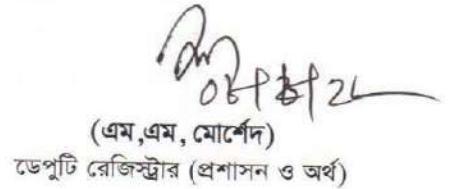 (এম,এম, মোর্শেদ)
ডেপুটি রেজিস্ট্রার (প্রশাসন ও অর্থ)